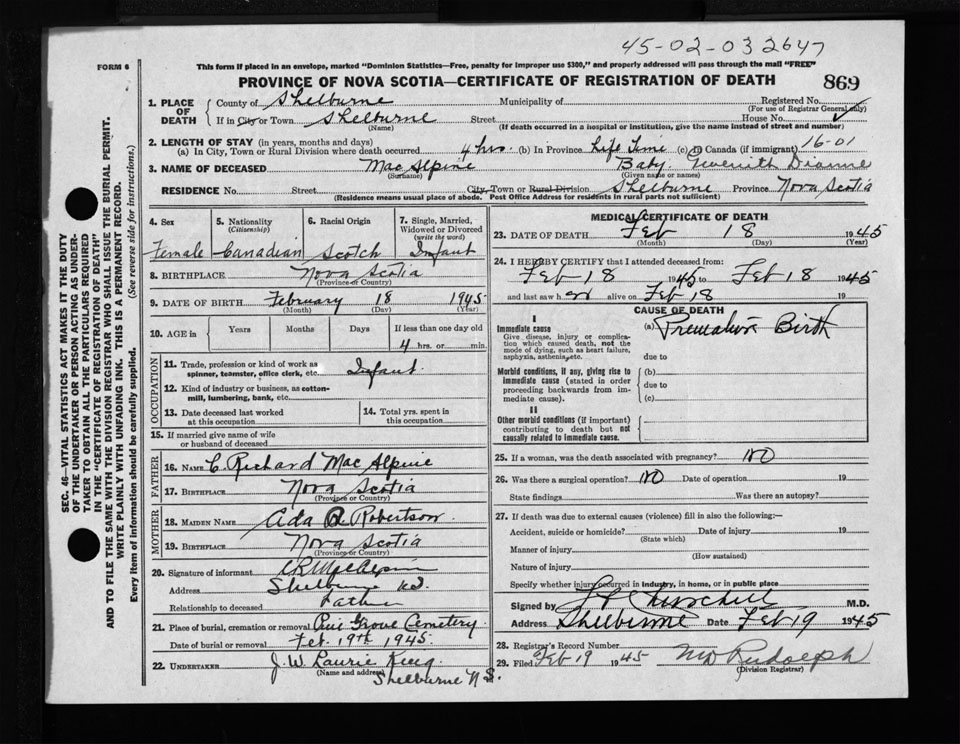 45-02-03 2647
FORM 6
This form if placed in an envelope, marked "Dominion Statistics—Free, penalty for improper use $300," and properly addressed will pass through the mail "FREE"
PROVINCE OF NOVA SCOTIA—CERTIFICATE OF REGISTRATION OF DEATH
869
1. PLACE OF DEATH
County of Shelburne Municipality of Registered No.
(For use of Registrar General only)
If in City or Town Shelburne Street House No.
(Name) (If death occurred in a hospital or institution, give the name instead of street and number)
2. LENGTH OF STAY (in years, months and days)
16-01
(a) In City, Town or Rural Division where death occurred 4 hrs. (b) In Province Life Time (c) In Canada (if immigrant)
3. NAME OF DECEASED Mac Alpine Baby Dianne
(Surname) (Given name or names)
RESIDENCE No. Street City, Town or Rural Division Shelburne Province Nova Scotia
(Residence means usual place of abode. Post Office Address for residents in rural parts not sufficient)
SEC. 46—VITAL STATISTICS ACT MAKES IT THE DUTY
OF THE UNDERTAKER OR PERSON ACTING AS UNDER-
TAKER TO OBTAIN ALL THE PARTICULARS REQUIRED
IN THE "CERTIFICATE OF REGISTRATION OF DEATH"
AND TO FILE THE SAME WITH THE DIVISION REGISTRAR WHO SHALL ISSUE THE BURIAL PERMIT.
WRITE PLAINLY WITH UNFADING INK. THIS IS A PERMANENT RECORD.
Every item of information should be carefully supplied. (See reverse side for instructions.)
4. Sex
Female
5. Nationality
(Citizenship)
Canadian
6. Racial Origin
Scotch
7. Single, Married, Widowed or Divorced
(write the word)
Infant
8. BIRTHPLACE Nova Scotia
(Province or Country)
9. DATE OF BIRTH February 18 1945
(Month) (Day) (Year)
10. AGE in Years Months Days If less than one day old
4 hrs. or min.
OCCUPATION
11. Trade, profession or kind of work as
spinner, teamster, office clerk, etc. Infant.
12. Kind of industry or business, as cotton-
mill, lumbering, bank, etc.
13. Date deceased last worked
at this occupation
14. Total yrs. spent in
this occupation
15. If married give name of wife
or husband of deceased
FATHER
16. NAME C. Richard Mac Alpine
17. BIRTHPLACE Nova Scotia
(Province or Country)
MOTHER
18. MAIDEN NAME Ada R. Robertson.
19. BIRTHPLACE Nova Scotia
(Province or Country)
20. Signature of informant C R MacAlpine
Address Shelburne N.S.
Relationship to deceased Father
21. Place of burial, cremation or removal Pine Grove Cemetery
Date of burial or removal Feb. 19th 1945.
22. UNDERTAKER J. W. Laurie King
(Name and address)
Shelburne N.S.
MEDICAL CERTIFICATE OF DEATH
23. DATE OF DEATH Feb 18 1945
(Month) (Day) (Year)
24. I HEREBY CERTIFY that I attended deceased from:
Feb 18 1945 to Feb 18 1945
and last saw her alive on Feb 18 19
CAUSE OF DEATH
I
Immediate cause
Give disease, injury or complica-
tion which caused death, not the
mode of dying, such as heart failure,
asphyxia, asthenia, etc.
(a) Premature Birth
due to
Morbid conditions, if any, giving rise to
immediate cause (stated in order
proceeding backwards from im-
mediate cause).
(b)
due to
(c)
II
Other morbid conditions (if important)
contributing to death but not
causally related to immediate cause.
25. If a woman, was the death associated with pregnancy? NO
26. Was there a surgical operation? NO Date of operation 19
State findings Was there an autopsy?
27. If death was due to external causes (violence) fill in also the following:—
Accident, suicide or homicide? Date of injury 19
(State which)
Manner of injury
(How sustained)
Nature of injury
Specify whether injury occurred in industry, in home, or in public place
Signed by Churchill M.D.
Address Shelburne Date Feb 19 1945
28. Registrar's Record Number
29. Filed Feb 19 1945 Rudolph
(Division Registrar)